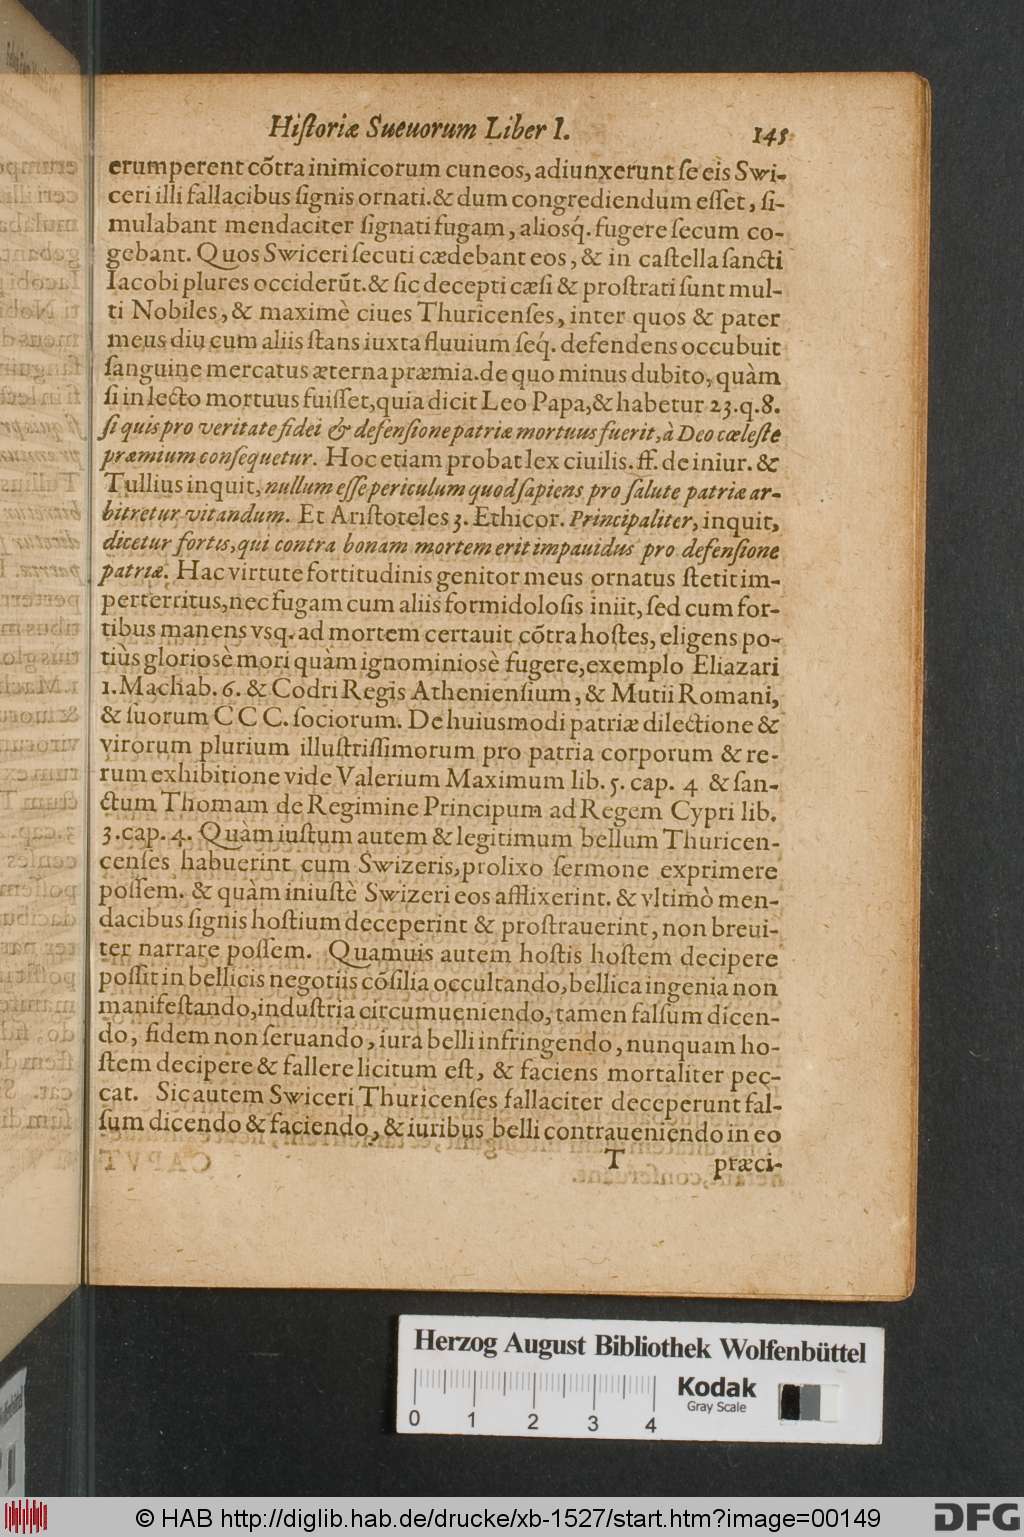 Hiſtoriæ Sueuorum Liber I. 145
erumperent cõtra inimicorum cuneos, adiunxerunt ſe eis Swi-
ceri illi fallacibus ſignis ornati. & dum congrediendum eſſet, ſi-
mulabant mendaciter ſignati fugam, aliosq́. fugere ſecum co-
gebant. Quos Swiceri ſecuti cædebant eos, & in caſtella ſancti
Iacobi plures occiderũt. & ſic decepti cæſi & proſtrati ſunt mul-
ti Nobiles, & maximè ciues Thuricenſes, inter quos & pater
meus diu cum aliis ſtans iuxta fluuium ſeq́. defendens occubuit
ſanguine mercatus æterna præmia. de quo minus dubito, quàm
ſi in lecto mortuus fuiſſet, quia dicit Leo Papa, & habetur 23. q. 8.
ſi quis pro veritate fidei & defenſione patriæ mortuus fuerit, à Deo cœleſte
præmium conſequetur. Hoc etiam probat lex ciuilis. ff. de iniur. &
Tullius inquit, nullum eſſe periculum quod ſapiens pro ſalute patriæ ar-
bitretur vitandum. Et Ariſtoteles 3. Ethicor. Principaliter, inquit,
dicetur fortis, qui contra bonam mortem erit impauidus pro defenſione
patriæ. Hac virtute fortitudinis genitor meus ornatus ſtetit im-
perterritus, nec fugam cum aliis formidoloſis iniit, ſed cum for-
tibus manens vsq. ad mortem certauit cõtra hoſtes, eligens po-
tiùs glorioſè mori quàm ignominiosè fugere, exemplo Eliazari
1. Machab. 6. & Codri Regis Athenienſium, & Mutii Romani,
& ſuorum C C C. ſociorum. De huiusmodi patriæ dilectione &
virorum plurium illuſtriſſimorum pro patria corporum & re-
rum exhibitione vide Valerium Maximum lib. 5. cap. 4 & ſan-
ctum Thomam de Regimine Principum ad Regem Cypri lib.
3. cap. 4. Quàm iuſtum autem & legitimum bellum Thuricen-
cenſes habuerint cum Swizeris, prolixo ſermone exprimere
poſſem. & quàm iniuſtè Swizeri eos afflixerint. & vltimò men-
dacibus ſignis hoſtium deceperint & proſtrauerint, non breui-
ter narrare poſſem. Quamuis autem hoſtis hoſtem decipere
poſſit in bellicis negotiis cõſilia occultando, bellica ingenia non
manifeſtando, induſtria circumueniendo, tamen falſum dicen-
do, fidem non ſeruando, iura belli infringendo, nunquam ho-
ſtem decipere & fallere licitum eſt, & faciens mortaliter pec-
cat. Sic autem Swiceri Thuricenſes fallaciter deceperunt fal-
ſum dicendo & faciendo, & iuribus belli contraueniendo in eo
T præci-
Herzog August Bibliothek Wolfenbüttel
Kodak
Gray Scale
0 1 2 3 4
© HAB http://diglib.hab.de/drucke/xb-1527/start.htm?image=00149
DFG